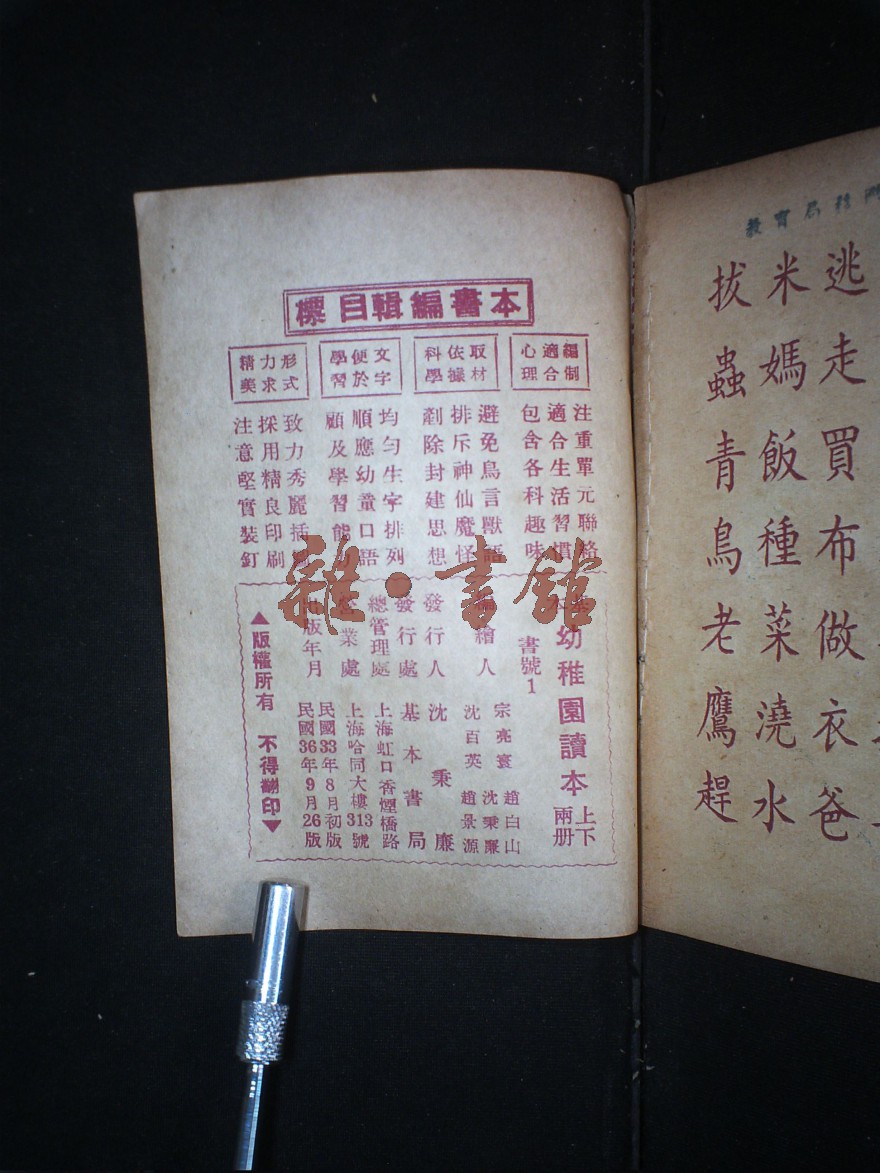 本書編輯目標
編制適合心理
注重單元聯絡
適合生活習慣
包含各科趣味
取材依據科學
避免鳥言獸語
排斥神仙魔怪
剷除封建思想
文字便於學習
均勻生字排列
順應幼童口語
顧及學習能
形式力求精美
致力秀麗插
採用精良印刷
注意堅實裝釘
幼稚園讀本 上下兩册
書號1
繪人 宗亮寰 趙白山
沈百英 沈秉廉
趙景源
發行人 沈秉廉
發行處 基本書局
總管理處 上海虹口香煙橋路
業處 上海哈同大樓313號
出版年月 民國33年8月初版
民國36年9月26版
▲版權所有 不得翻印▼
逃走買布做衣爸
米媽飯種菜澆水
拔蟲青鳥老鷹趕
教育局
雜·書館